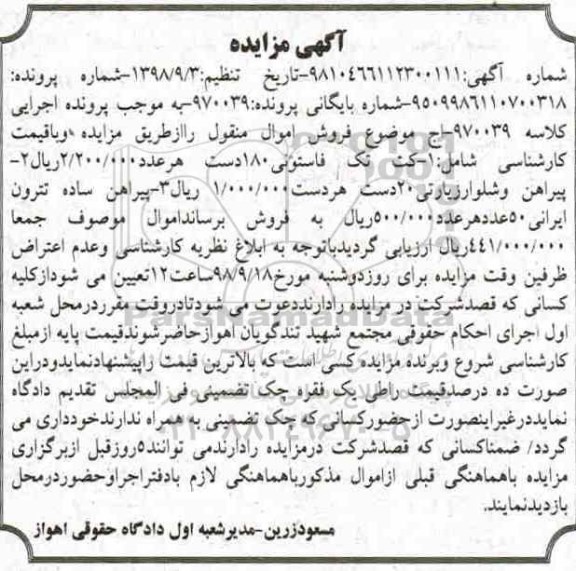 آگهی مزایده
شماره آگهی:۹۸۱۰۴۶۶۱۱۲۳۰۰۱۱۱-تاریخ تنظیم:۱۳۹۸/۹/۳-شماره پرونده:
۹۵۰۹۹۸۶۱۱۰۷۰۰۳۱۸-شماره بایگانی پرونده:۹۷۰۰۳۹-به موجب پرونده اجرایی
کلاسه ۹۷۰۰۳۹-اج موضوع فروش اموال منقول راازطریق مزایده وباقیمت
کارشناسی شامل:۱-کت تک فاستونی۱۸۰دست هرعدد۲/۲۰۰/۰۰۰ریال۲-
پیراهن وشلوارزیاتی۲۰دست هردست۱/۰۰۰/۰۰۰ ریال۳-پیراهن ساده تترون
ایرانی۵۰عددهرعدد۵۰۰/۰۰۰ریال به فروش برسانداموال موصوف جمعا
۴۴۱/۰۰۰/۰۰۰ریال ارزیابی گردیدباتوجه به ابلاغ نظریه کارشناسی وعدم اعتراض
طرفین وقت مزایده برای روزدوشنبه مورخ۹۸/۹/۱۸ساعت۱۲تعیین می شودازکلیه
کسانی که قصدشرکت در مزایده رادارنددعوت می شودتادروقت مقرردرمحل شعبه
اول اجرای احکام حقوقی مجتمع شهید تندگویان اهوازحاضرشوندقیمت پایه ازمبلغ
کارشناسی شروع وبرنده مزایده کسی است که بالاترین قیمت راپیشنهادنمایدودراین
صورت ده درصدقیمت راطی یک فقره چک تضمینی فی المجلس تقدیم دادگاه
نمایددرغیراینصورت ازحضورکسانی که چک تضمینی به همراه ندارندخودداری می
گردد/ ضمناکسانی که قصدشرکت درمزایده رادارندمی توانند۵روزقبل ازبرگزاری
مزایده باهماهنگی قبلی ازاموال مذکورباهماهنگی لازم بادفتراجراوحضوردرمحل
بازدیدنمایند.
مسعودزرین-مدیرشعبه اول دادگاه حقوقی اهواز
ParsNamadData